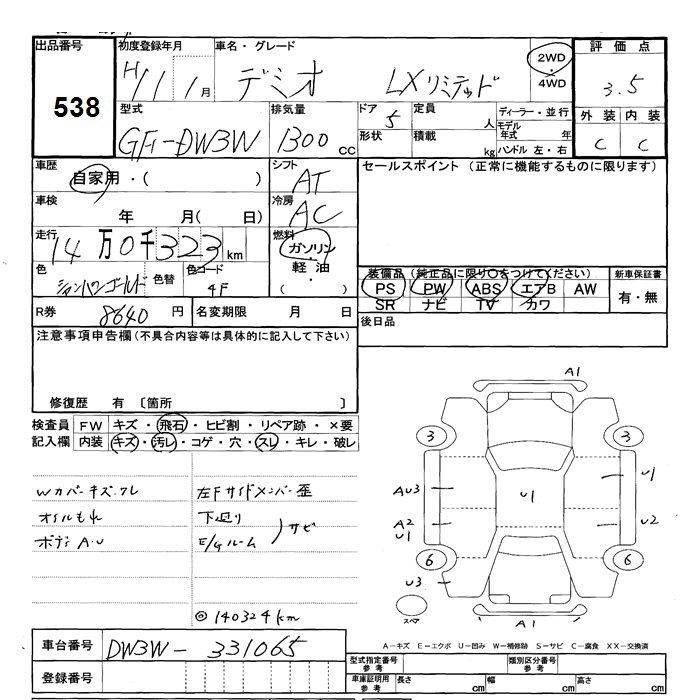 出品番号
538
初度登録年月
H11 1月
車名・グレード
デミオ LXリミテッド
2WD
・
4WD
評価点
3.5
外装 内装
C C
型式
GF-DW3W
排気量
1300 cc
ドア 5
形状
定員 人
積載 kg
ディーラー・並行
モデル年式 年
ハンドル 左・右
車歴
自家用・( )
シフト
AT
セールスポイント (正常に機能するものに限ります)
車検
年 月( 日)
冷房
AC
走行
14万0千323km
燃料
ガソリン
軽油
・
( )
色
シャンパンゴールド
色替
色コード
4F
装備品(純正品に限り○をつけてください)
PS PW ABS エアB AW
SR ナビ TV カワ
新車保証書
有・無
R券 8640 円
名変期限 月 日
後日品
注意事項申告欄(不具合内容等は具体的に記入して下さい)
修復歴 有 〔箇所 〕
検査員 記入欄
FW キズ・飛石・ヒビ割・リペア跡・×要
内装 キズ・汚レ・コゲ・穴・スレ・キレ・破レ
Wカバーキズ、ワレ
オイルもれ
ボディA・U
左Fサイドメンバー歪
下廻り
E/Gルーム
サビ
◎140324km
A1
3 3
AU3 U1 U1
A2 U2
U1
6 6
U3
スペア
A1
A－キズ E－エクボ U－凹み W－補修跡 S－サビ C－腐食 XX－交換済
車台番号 DW3W-331065
登録番号
型式指定番号 参考
類別区分番号 参考
車庫証明用 参考
長さ cm 幅 cm 高さ cm